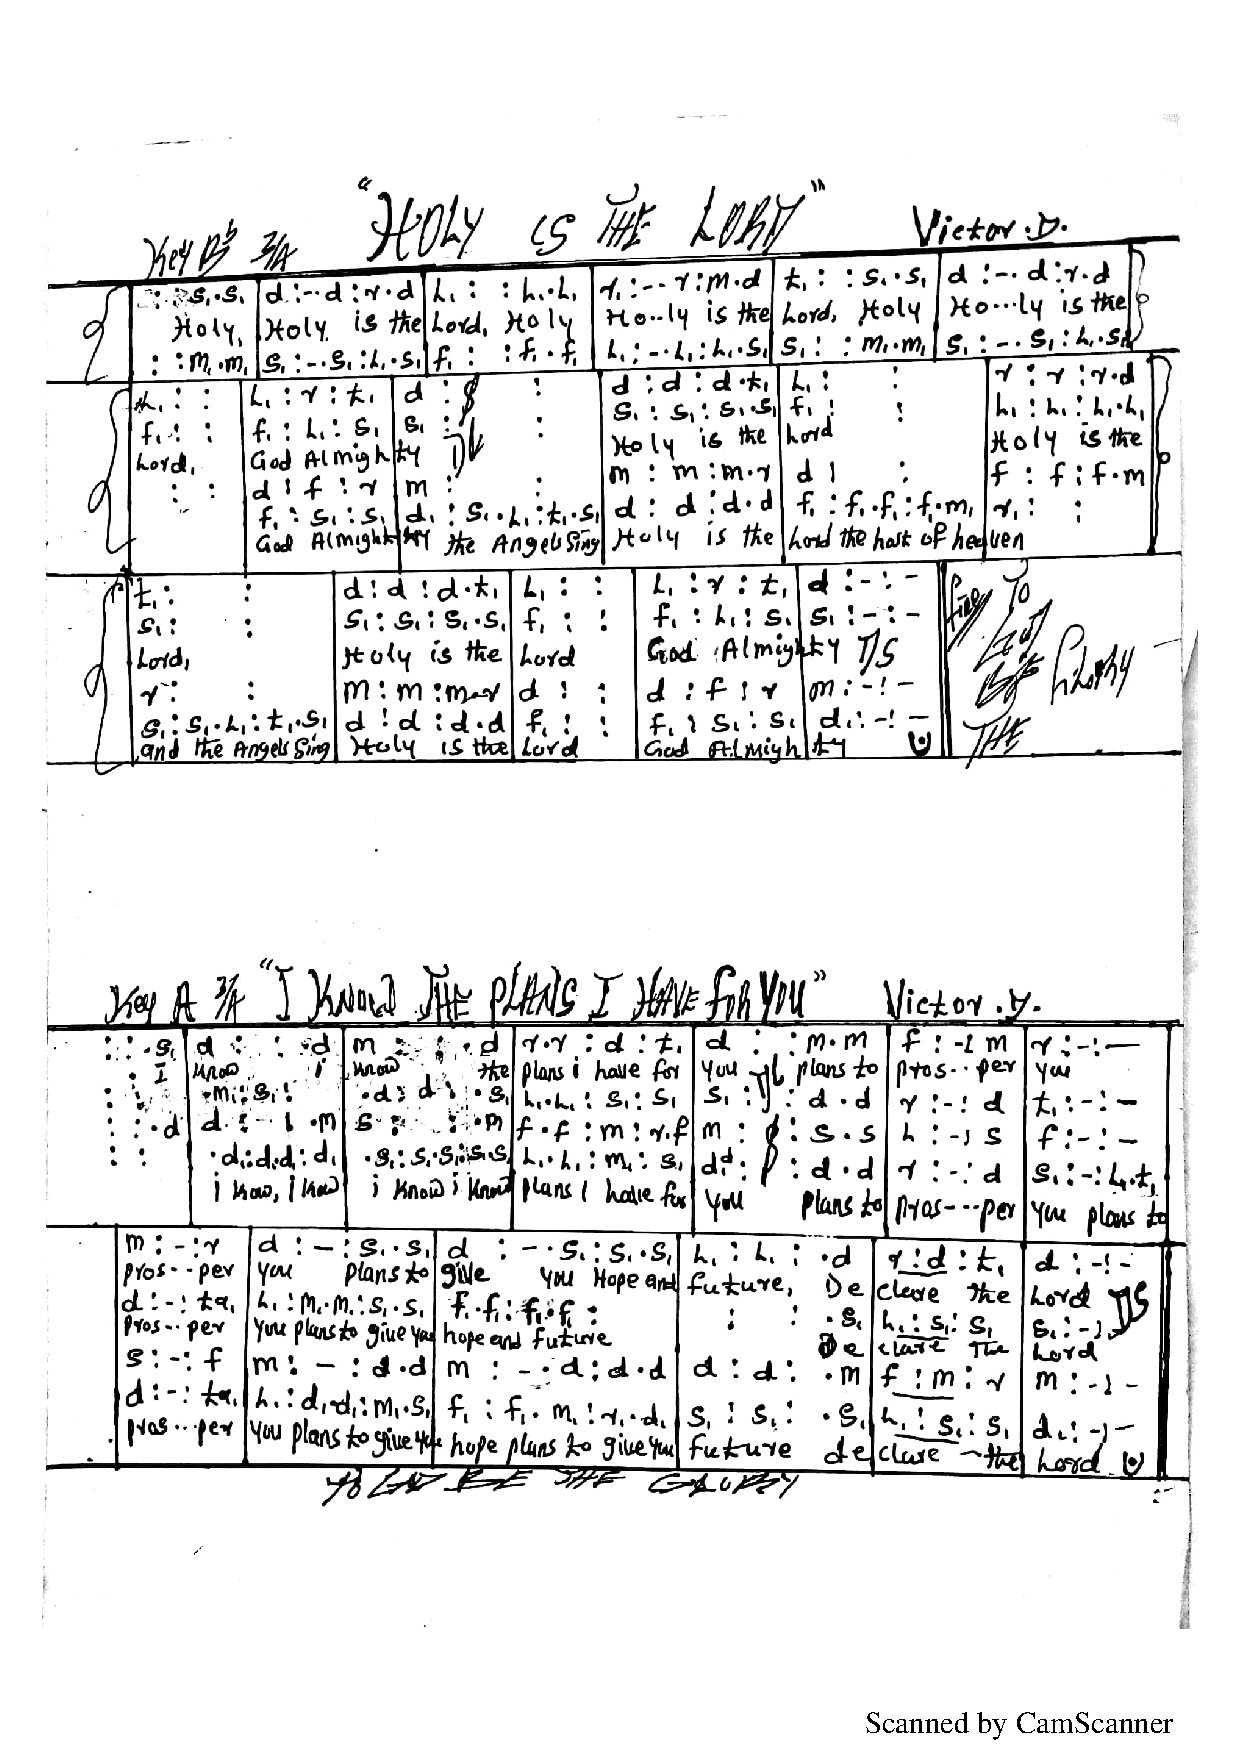 "HOLY IS THE LORD"
Key Bb 3/4 Victor .D.
: :s₁.s₁ | d :-. d :r.d | l₁ : : l₁.l₁ | r₁:-.r:m.d | t₁ : : s₁.s₁ | d :-. d:r.d
Holy, | Holy is the | Lord, Holy | Ho..ly is the | Lord, Holy | Ho...ly is the
: :m₁.m₁ | s₁:-.s₁:l₁.s₁ | f₁ : :f₁.f₁ | l₁:-.l₁:l₁.s₁ | s₁ : : m₁.m₁ | s₁ :-. s₁:l₁.s₁
l₁ : : | l₁ : r : t₁ | d : : | d : d : d.t₁ | l₁ : : | r : r : r.d
f₁ : : | f₁ : l₁ : s₁ | s₁ : : | s₁ : s₁ : s₁.s₁ | f₁ : : | l₁ : l₁ : l₁.l₁
Lord, | God Almigh | ty | Holy is the | Lord | Holy is the
: : | d : f : r | m : : | m : m :m.r | d : : | f : f : f.m
f₁ : s₁ : s₁ | d₁ : s₁.l₁:t₁.s₁ | d : d :d.d | f₁ : f₁.f₁:f₁.m₁ | r₁ : :
God Almigh | ty the Angels Sing | Holy is the | Lord the host of heaven
t₁ : : | d : d : d.t₁ | l₁ : : | l₁ : r : t₁ | d :-:-
s₁ : : | s₁ : s₁ : s₁.s₁ | f₁ : : | f₁ : l₁ : s₁ | s₁ :-:-
Lord, | Holy is the | Lord | God Almigh | ty D/S
r : : | m : m :m.r | d : : | d : f : r | m :-:-
s₁ : s₁.l₁ : t₁.s₁ | d : d : d.d | f₁ : : | f₁ : s₁ : s₁ | d₁ :-:-
and the Angels Sing | Holy is the | Lord | God Almigh | ty
fine
TO GOD BE THE Glory
Key A 3/4 "I KNOW THE PLANS I HAVE FOR YOU" Victor .D.
: : .s₁ | d : : .d | m : : .d | r.r : d : t₁ | d : : m.m | f :-: m | r :-:-
I | know i | know the | plans i have for | you plans to | pros...per | you
: : | .m₁:s₁: | .d:d: .s₁ | l₁.l₁ : s₁ : s₁ | s₁ : : d.d | r :-: d | t₁ :-:-
: : .d | d :-: .m | s : : .m | f.f : m : r.f | m : : s.s | l :-: s | f :-:-
: : | .d₁:d₁.d₁: d₁ | .s₁:s₁.s₁:s₁.s₁ | l₁.l₁ : m₁ : s₁ | d₁d : : d.d | r :-: d | s₁ :-:l₁.t₁
i know, i know | i know i know | plans I have for | you plans to | pros---per | you plans to
m :-:r | d :-:s₁.s₁ | d :-.s₁:s₁.s₁ | l₁ : l₁ : .d | r:d : t₁ | d :-:-
pros...per | you plans to | give you Hope and | future, De | clare the | Lord D/S
d :-: ta₁ | l₁ : m₁.m₁:s₁.s₁ | f₁.f₁:f₁.f₁ : | : : .s₁ | l₁ : s₁ : s₁ | s₁ :-:
pros...per | you plans to give you | hope and future | De | clare The | Lord
s :-: f | m : - : d.d | m :-.d:d.d | d : d : .m | f : m : r | m :-:-
d :-: ta₁ | l₁ : d₁.d₁:m₁.s₁ | f₁ : f₁.m₁:r₁.d₁ | s₁ : s₁ : .s₁ | l₁ : s₁ : s₁ | d₁ :-:-
pros...per | you plans to give you | hope plans to give you | future de | clare ~the | Lord
TO GOD BE THE GLORY
Scanned by CamScanner